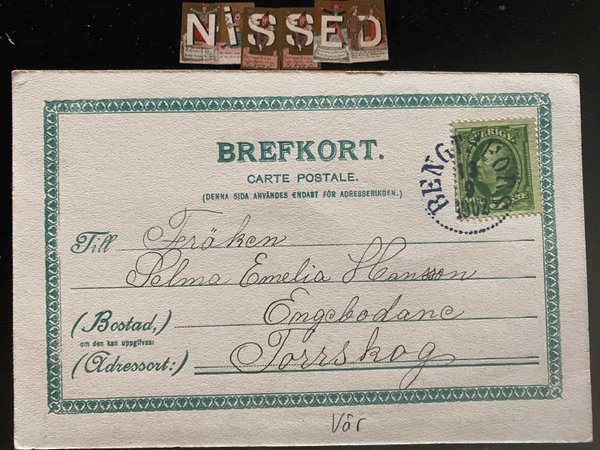 NiSSED
BREFKORT.
CARTE POSTALE.
(DENNA SIDA ANVÄNDES ENDAST FÖR ADRESSERINGEN.)
SVERIGE
BENGT
1902
Till Fröken
Selma Emelia Hansson
(Bostad,) Engebodane
om den kan uppgifvas:
(Adressort:) Torrskog
Vår